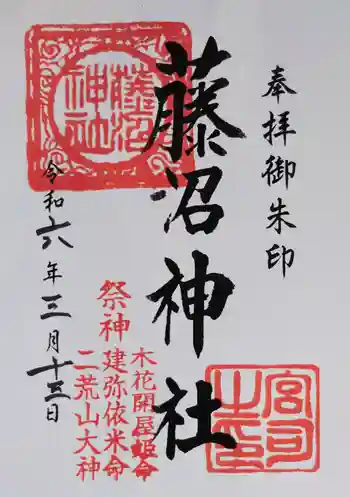 奉拝御朱印
藤沼神社
藤沼神社
令和六年三月十三日
祭神
木花開屋姫命
建弥依米命
二荒山大神
宮司之印